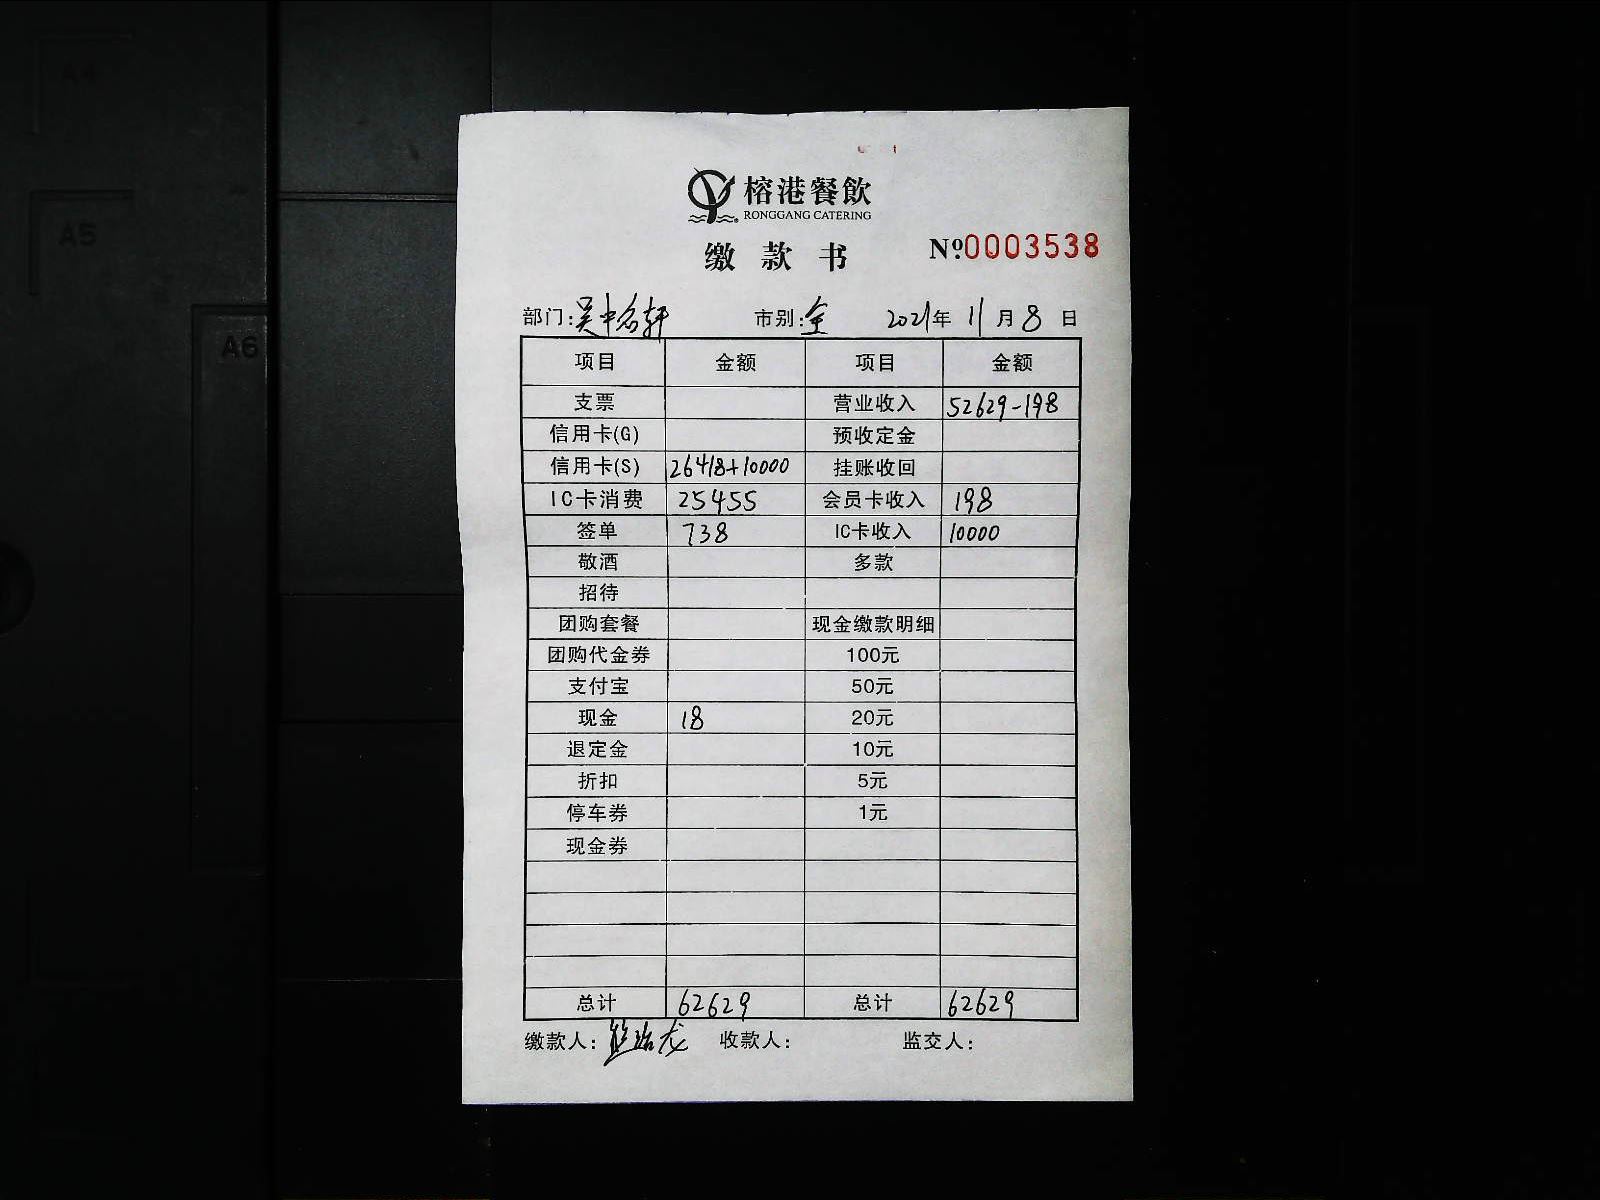 A4
A5
A6
榕港餐飲
RONGGANG CATERING
缴款书 №0003538
部门:吴中名轩 市别:全 2021年11月8日
项目 金额 项目 金额
支票 营业收入 52629-198
信用卡(G) 预收定金
信用卡(S) 26418+10000 挂账收回
IC卡消费 25455 会员卡收入 198
签单 738 IC卡收入 10000
敬酒 多款
招待
团购套餐 现金缴款明细
团购代金券 100元
支付宝 50元
现金 18 20元
退定金 10元
折扣 5元
停车券 1元
现金券
总计 62629 总计 62629
缴款人: 收款人: 监交人: